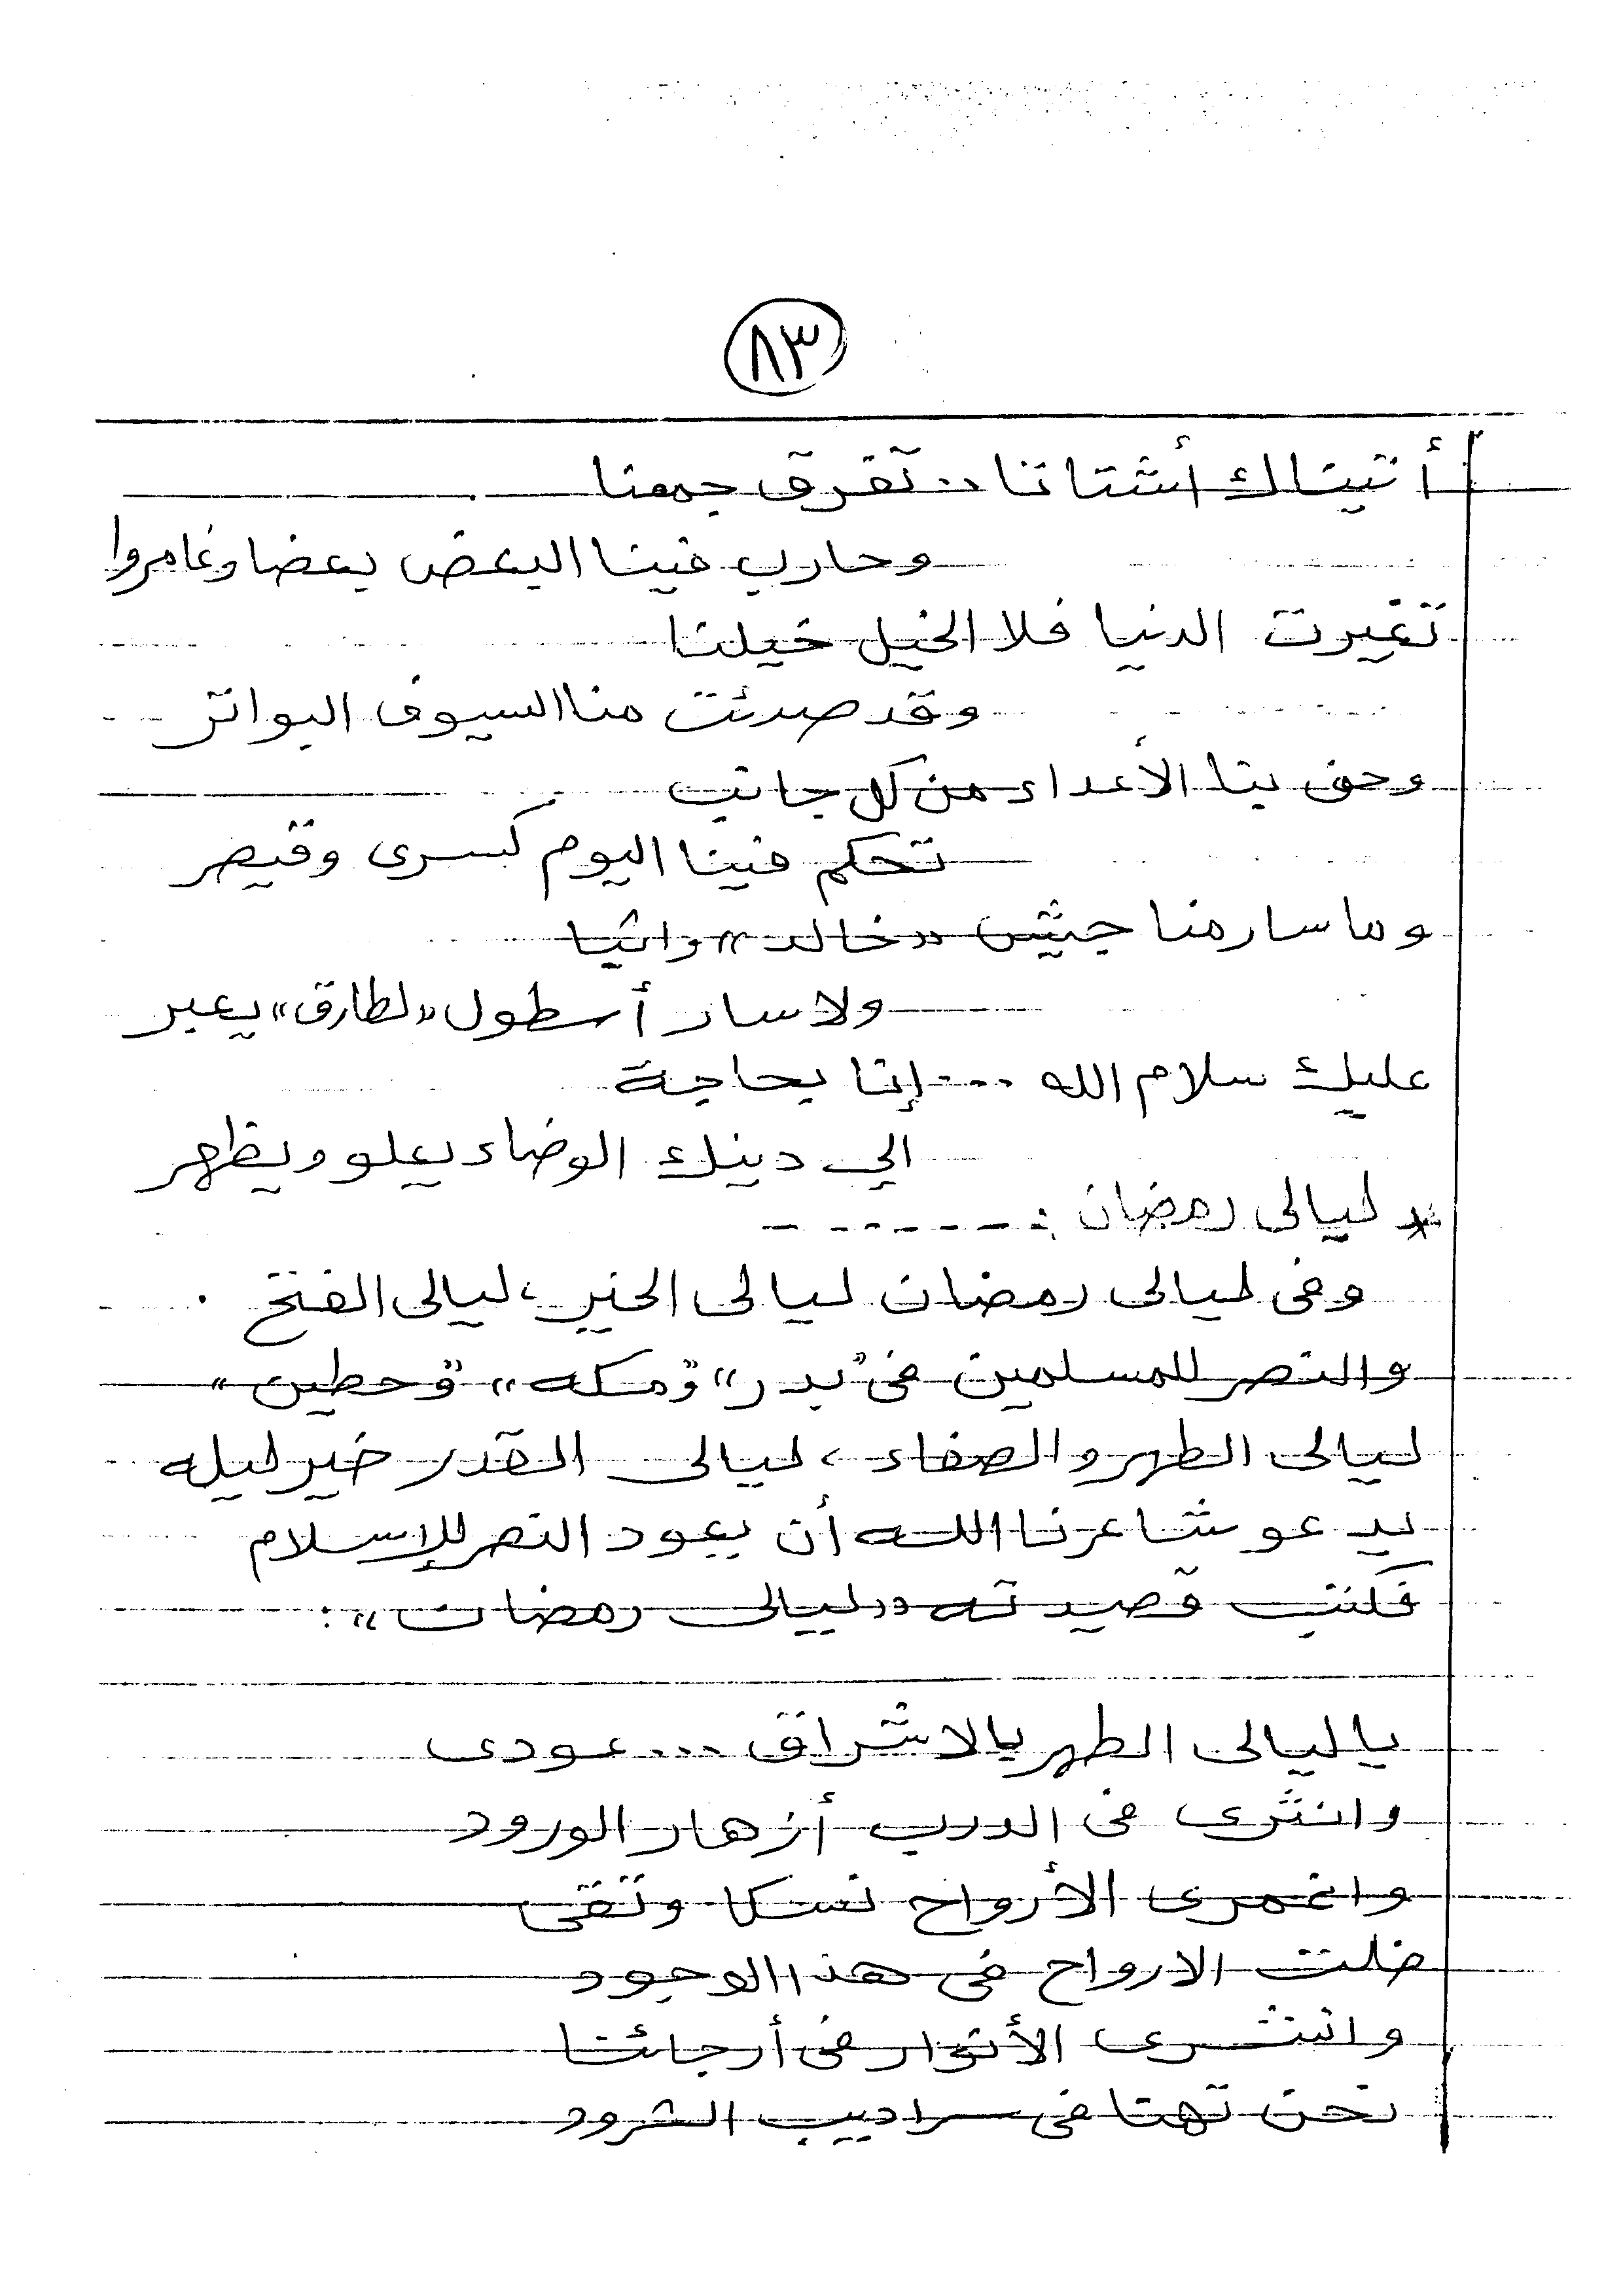 ٨٣
أتيناك أشتاتنا .. تفرق جمعنا
وحارب فينا البعض بعضا وغامروا
تغيرت الدنيا فلا الخيل خيلنا
وقد صدئت منا السيوف البواتر
وحف بنا الأعداء من كل جانب
تحكم فينا اليوم كسرى وقيصر
وما سار منا جيش «خالد» واثبا
ولا سار أسطول «لطارق» يعبر
عليك سلام الله ... إننا بحاجة
الي دينك الوضاء يعلو ويظهر
* ليالى رمضان : - - - - - - -
وفى ليالى رمضان ليالى الخير ، ليالى الفتح
والنصر للمسلمين فى "بدر" و"مكه" و"حطين"
ليالى الطهر والصفاء ، ليالى القدر خير ليله
يدعو شاعرنا الله أن يعود النصر للإسلام
فكتب قصيدته «ليالى رمضان» :
يا ليالى الطهر بالاشراق ... عودى
وانثرى فى الدرب أزهار الورود
واغمرى الأرواح نسكا وتقى
ضلت الارواح فى هذا الوجود
وانثرى الأنوار فى أرجائنا
نحن تهنا فى سراديب الشرود